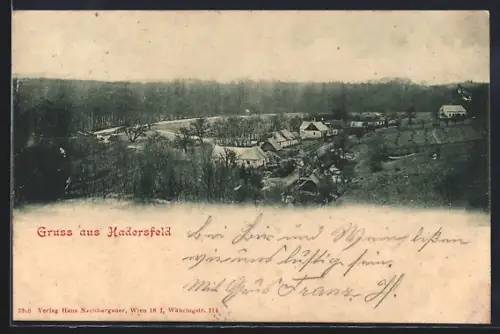 Gruss aus Hadersfeld
Bei Bier und Wein
wir uns lustig sein.
Mit Gruß Franz
Verlag Hans Nachbargauer, Wien 18 I, Währingstr. 114